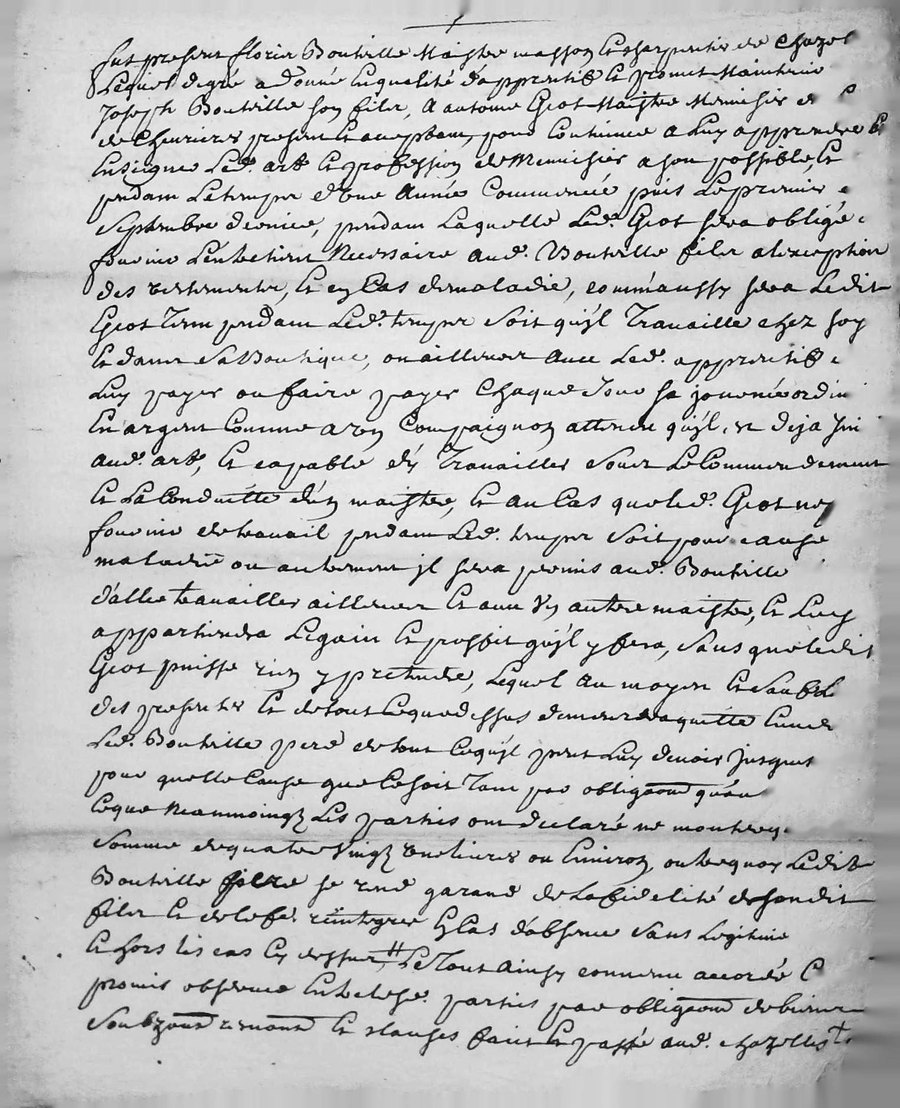 fut present floris Boutrille Maistre masson et charpentier de Chazel
Lequel de gré a donné en qualité d'apprentif et promet maintenir
Joseph Boutrille son fils, a antoine Giot Maistre Menuisier
de Chevrieres present et acceptant, pour continuer a Luy apprendre et
Enseigner Led. art et profession de Menuisier a son possible, et
pendant Le temps d'une Année Commencée puis Le premier
Septembre dernier, pendant Laquelle Led. Giot sera obligé
fournir L'entretien Necessaire aud. Boutrille fils a l'exception
des vestements, et en Cas de maladie, comm'aussy sera Ledit
Giot Tenu pendant Led. temps Soit qu'yl Travaille chez soy
Et dans Sa Boutique, ou ailleurs avec Led. apprentif
Luy payer ou faire payer Chaque Jour sa journée ordin
En argent Comme a un Compaignon attendu qu'yl est deja
aud. art, et capable d'y Travailler Sous Le Commendement
Et La Conduitte d'un maistre, et au Cas que led. Giot ne
fournir de travail pendant Led. temps Soit pour cause
maladie ou autrement jl sera permis aud. Boutrille
d'aller travailler ailleurs et avec un autre maistre, et Luy
appartiendra Le gain et proffit qu'yl y fera, Sans que ledit
Giot puisse rien y pretendre, Lequel au moyen et
des presentes et de tout Ce que dessus demeure quitte Envers
Led. Boutrille pere de tout Ce qu'yl peut Luy devoir jusques
pour quelle Cause que Ce soit Tant par obligaon qu'au
Ce que Neanmoingz Les parties ont declaré ne monter
Somme de quatre vingz une livres ou Environ, au lequoy Ledit
Boutrille pere se rend garand de La fidelité de son dit
fils et de le fe. reintegrer En Cas d'absence Sans Legitime
Et hors les cas Cy dessus, Le Tout Ainsy convenu accordé
promis observer Entre les. parties par obligaon de biens
Soubzons renons et clauses fait et passé aud. chazelles